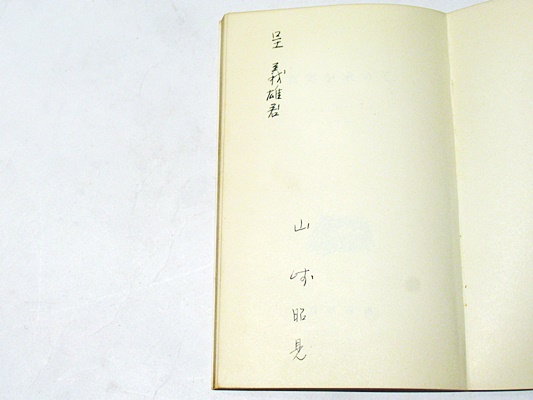 呈 義雄君
山崎昭見